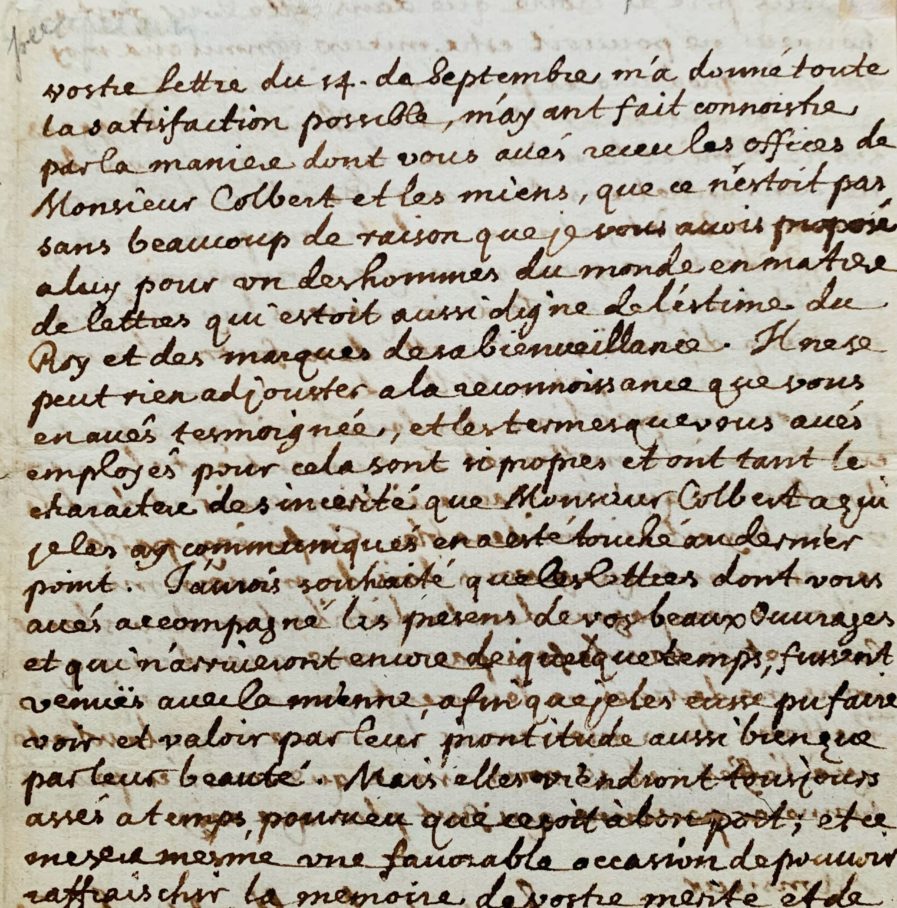 vostre lettre du 14. de Septembre m'a donné toute
la satisfaction possible, m'ayant fait connoistre
par la maniere dont vous avés receu les offices de
Monsieur Colbert et les miens, que ce n'estoit pas
sans beaucoup de raison que je vous avois proposé
a luy pour vn des hommes du monde en matiere
de lettres qui estoit aussi digne de l'estime du
Roy et des marques de sa bienveïllance. Il ne se
peut rien adjouster a la reconnoissance que vous
en avés tesmoignée, et les termes que vous avés
employés pour cela sont si propres et ont tant le
charactere de sincerité que Monsieur Colbert a qui
je les ay communiqués en a esté touché au dernier
point. J'aurois souhaité que les lettres dont vous
avés accompagné les presens de vos beaux Ouvrages
et qui n'arriveront encore de quelque temps, fussent
venuës avec la mienne, afin que je les eusse pu faire
voir et valoir par leur prontitude aussi bien que
par leur beauté. Mais elles viendront tousjours
assés a temps, pourveu que ce soit à bon port; et ce
me sera mesme vne favorable occasion de pouvoir
raffraischir la memoire de vostre merite et de